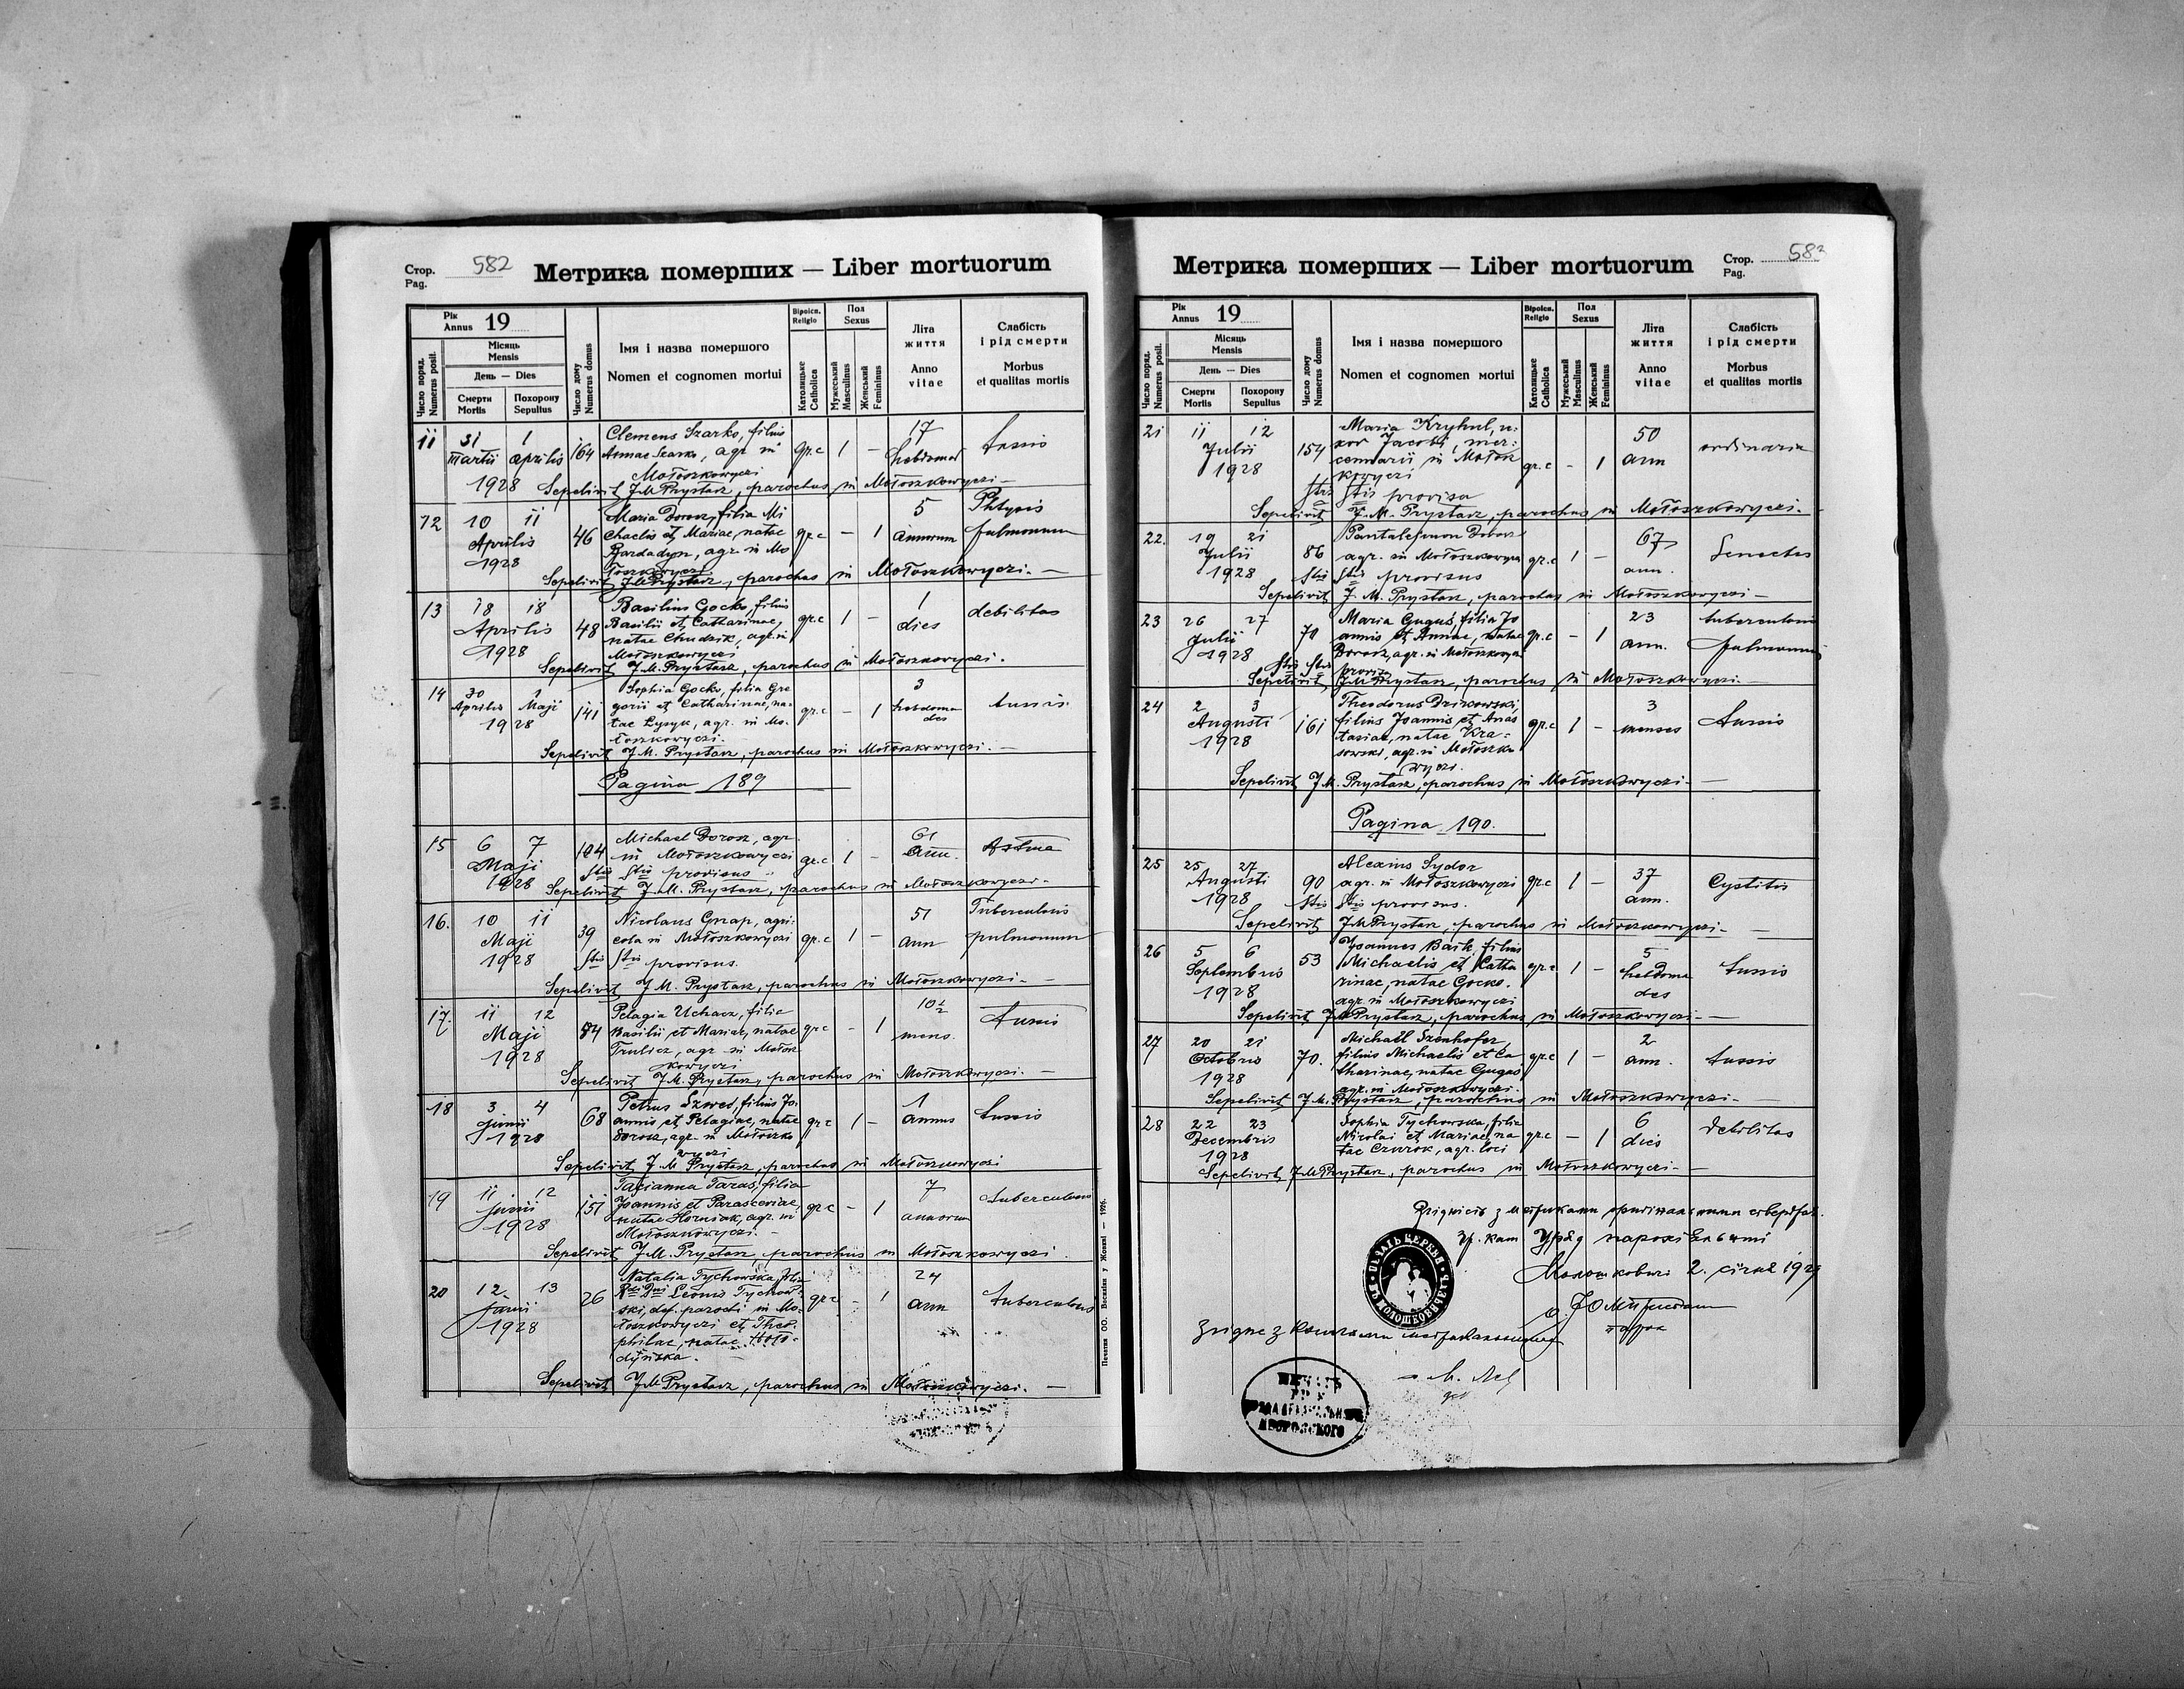 Стор. 582
Pag.
Метрика померших — Liber mortuorum
Рік
Annus 19
Місяць
Mensis
День — Dies
Число поряд.
Numerus posit.
Смерти
Mortis
Похорону
Sepultus
Число дому
Numerus domus
Імя і назва помершого
Nomen et cognomen mortui
Віроісп.
Religio
Католицьке
Catholica
Пол
Sexus
Мужеський
Masculinus
Женський
Femininus
Літа
життя
Anno
vitae
Слабість
і рід смерти
Morbus
et qualitas mortis
11 31 1 164 Clemens Szarko, filius 17
Martii Aprilis Annae Szarko, agr. in gr.c 1 – hebdomad tussis
1928 Mołoszkowyczi
Sepelivit J.M. Prystasz, parochus in Mołoszkowyczi –
12 10 11 46 Maria Dorosz, filia Mi 5 Phtysis
Aprilis chaelis et Mariae, natae gr.c – 1 annorum pulmonum
1928 Bardadyn, agr. in Mo
łoszkowyczi
Sepelivit J.M. Prystasz, parochus in Mołoszkowyczi. –
13 18 18 48 Basilius Gocko, filius 1 debilitas
Aprilis Basilii et Catharinae, gr.c 1 – dies
1928 natae Chudzik, agr. in
Mołoszkowyczi
Sepelivit J.M. Prystasz, parochus in Mołoszkowyczi.
14 30 1 141 Sophia Gocko, filia Gre 3
Aprilis Maji gorii et Catharinae, na- gr.c – 1 hebdoma tussis
1928 tae Lysyk, agr. in Mo- des
łoszkowyczi. –
Sepelivit J.M. Prystasz, parochus in Mołoszkowyczi. –
Pagina 189
15 6 7 104 Michael Dorosz, agr. 61
Maji in Mołoszkowyczi gr.c 1 – ann. Astma
1928 Stis Stis provisus
Sepelivit J.M. Prystasz, parochus in Mołoszkowyczi –
16. 10 11 39 Nicolaus Gnap, agri- 51 Tuberculosis
Maji cola in Mołoszkowyczi gr.c 1 – ann pulmonum
1928 Stis Stis provisus.
Sepelivit J.M. Prystasz, parochus in Mołoszkowyczi –
17. 11 12 84 Pelagia Uchacz, filia 10½
Maji Basilii et Mariae, natae gr.c – 1 mens. tussis
1928 Trulicz, agr. in Mołosz
kowyczi
Sepelivit J.M. Prystasz, parochus in Mołoszkowyczi. –
18 3 4 68 Petrus Szwed, filius Jo- 1
Junii annis et Pelagiae, natae gr.c 1 – annus tussis
1928 Dorosz, agr. in Mołoszko
wyczi
Sepelivit J.M. Prystasz, parochus in Mołoszkowyczi
19 11 12 151 Tacianna Taras, filia 7
Junii Joannis et Parasceviae, gr.c – 1 annorum tuberculosis
1928 natae Horniak, agr. in
Mołoszkowyczi. –
Sepelivit J.M. Prystasz, parochus in Mołoszkowyczi.
20 12 13 26 Natalia Tychowska, filia 24
Junii Rdi Dni Leonis Tychow- gr.c – 1 ann tuberculosis
1928 ski, def. parochi in Mo-
łoszkowyczi et Theo-
philae, natae Hoło-
dyńska.
Sepelivit J.M. Prystasz, parochus in Mołoszkowyczi. –
Печатня ОО. Василіян у Жовкві — 1926.
Метрика померших — Liber mortuorum
Стор. 583
Pag.
Рік
Annus 19
Місяць
Mensis
День — Dies
Число поряд.
Numerus posit.
Смерти
Mortis
Похорону
Sepultus
Число дому
Numerus domus
Імя і назва помершого
Nomen et cognomen mortui
Віроісп.
Religio
Католицьке
Catholica
Пол
Sexus
Мужеський
Masculinus
Женський
Femininus
Літа
життя
Anno
vitae
Слабість
і рід смерти
Morbus
et qualitas mortis
21 11 12 154 Maria Kryhul, u- 50
Julii xor Jacobi, mer- ann ordinaria
1928 cennarii in Mołosz gr.c – 1
kowyczi
Stis Stis provisa
Sepelivit J.M. Prystasz, parochus in Mołoszkowyczi.
22. 19 21 86 Pantalejmon Dorosz 67
Julii agr. in Mołoszkowyczi gr.c 1 – ann. Senectus
1928 Stis Stis provisus
Sepelivit J.M. Prystasz, parochus in Mołoszkowyczi –
23 26 27 70 Maria Guguś, filia Jo 23 tuberculosis
Julii annis et Annae, natae gr.c – 1 ann. pulmonum
1928 Dorosz, agr. in Mołoszkowyczi
Stis Stis provisa
Sepelivit J.M. Prystasz, parochus in Mołoszkowyczi. –
24 2 3 161 Theodorus Dzikowski, 3
Augusti filius Joannis et Anas gr.c 1 – menses tussis
1928 tasiae, natae Kra-
sowski, agr. in Mołoszko
wyczi.
Sepelivit J.M. Prystasz, parochus in Mołoszkowyczi –
Pagina 190.
25 25 27 90 Alexius Sydor 37
Augusti agr. in Mołoszkowyczi gr.c 1 – ann. Cystitis
1928 Stis Stis provisus.
Sepelivit J.M. Prystasz, parochus in Mołoszkowyczi –
26 5 6 53 Joannes Baik, filius 5
Septembris Michaelis et Catha gr.c 1 – hebdoma tussis
1928 rinae, natae Gocko. des
agr. in Mołoszkowyczi
Sepelivit J.M. Prystasz, parochus in Mołoszkowyczi –
27 20 21 70. Michaël Szenhofer, 2
Octobris filius Michaelis et Ca gr.c 1 – ann. tussis
1928 tharinae, natae Gugas
agr. in Mołoszkowyczi.
Sepelivit J.M. Prystasz, parochus in Mołoszkowyczi –
28 22 23 Sophia Tychowska, filia 6
Decembris Nicolai et Mariae, na gr.c – 1 dies debilitas
1928 tae Czurok, agr. loci
Sepelivit J.M. Prystasz, parochus in Mołoszkowyczi –
Згідність з метриками оригінальними стверджає.
Гр. кат Уряд парохіяльний
Молошковичі 2. січня 1929
парох
Згідне з